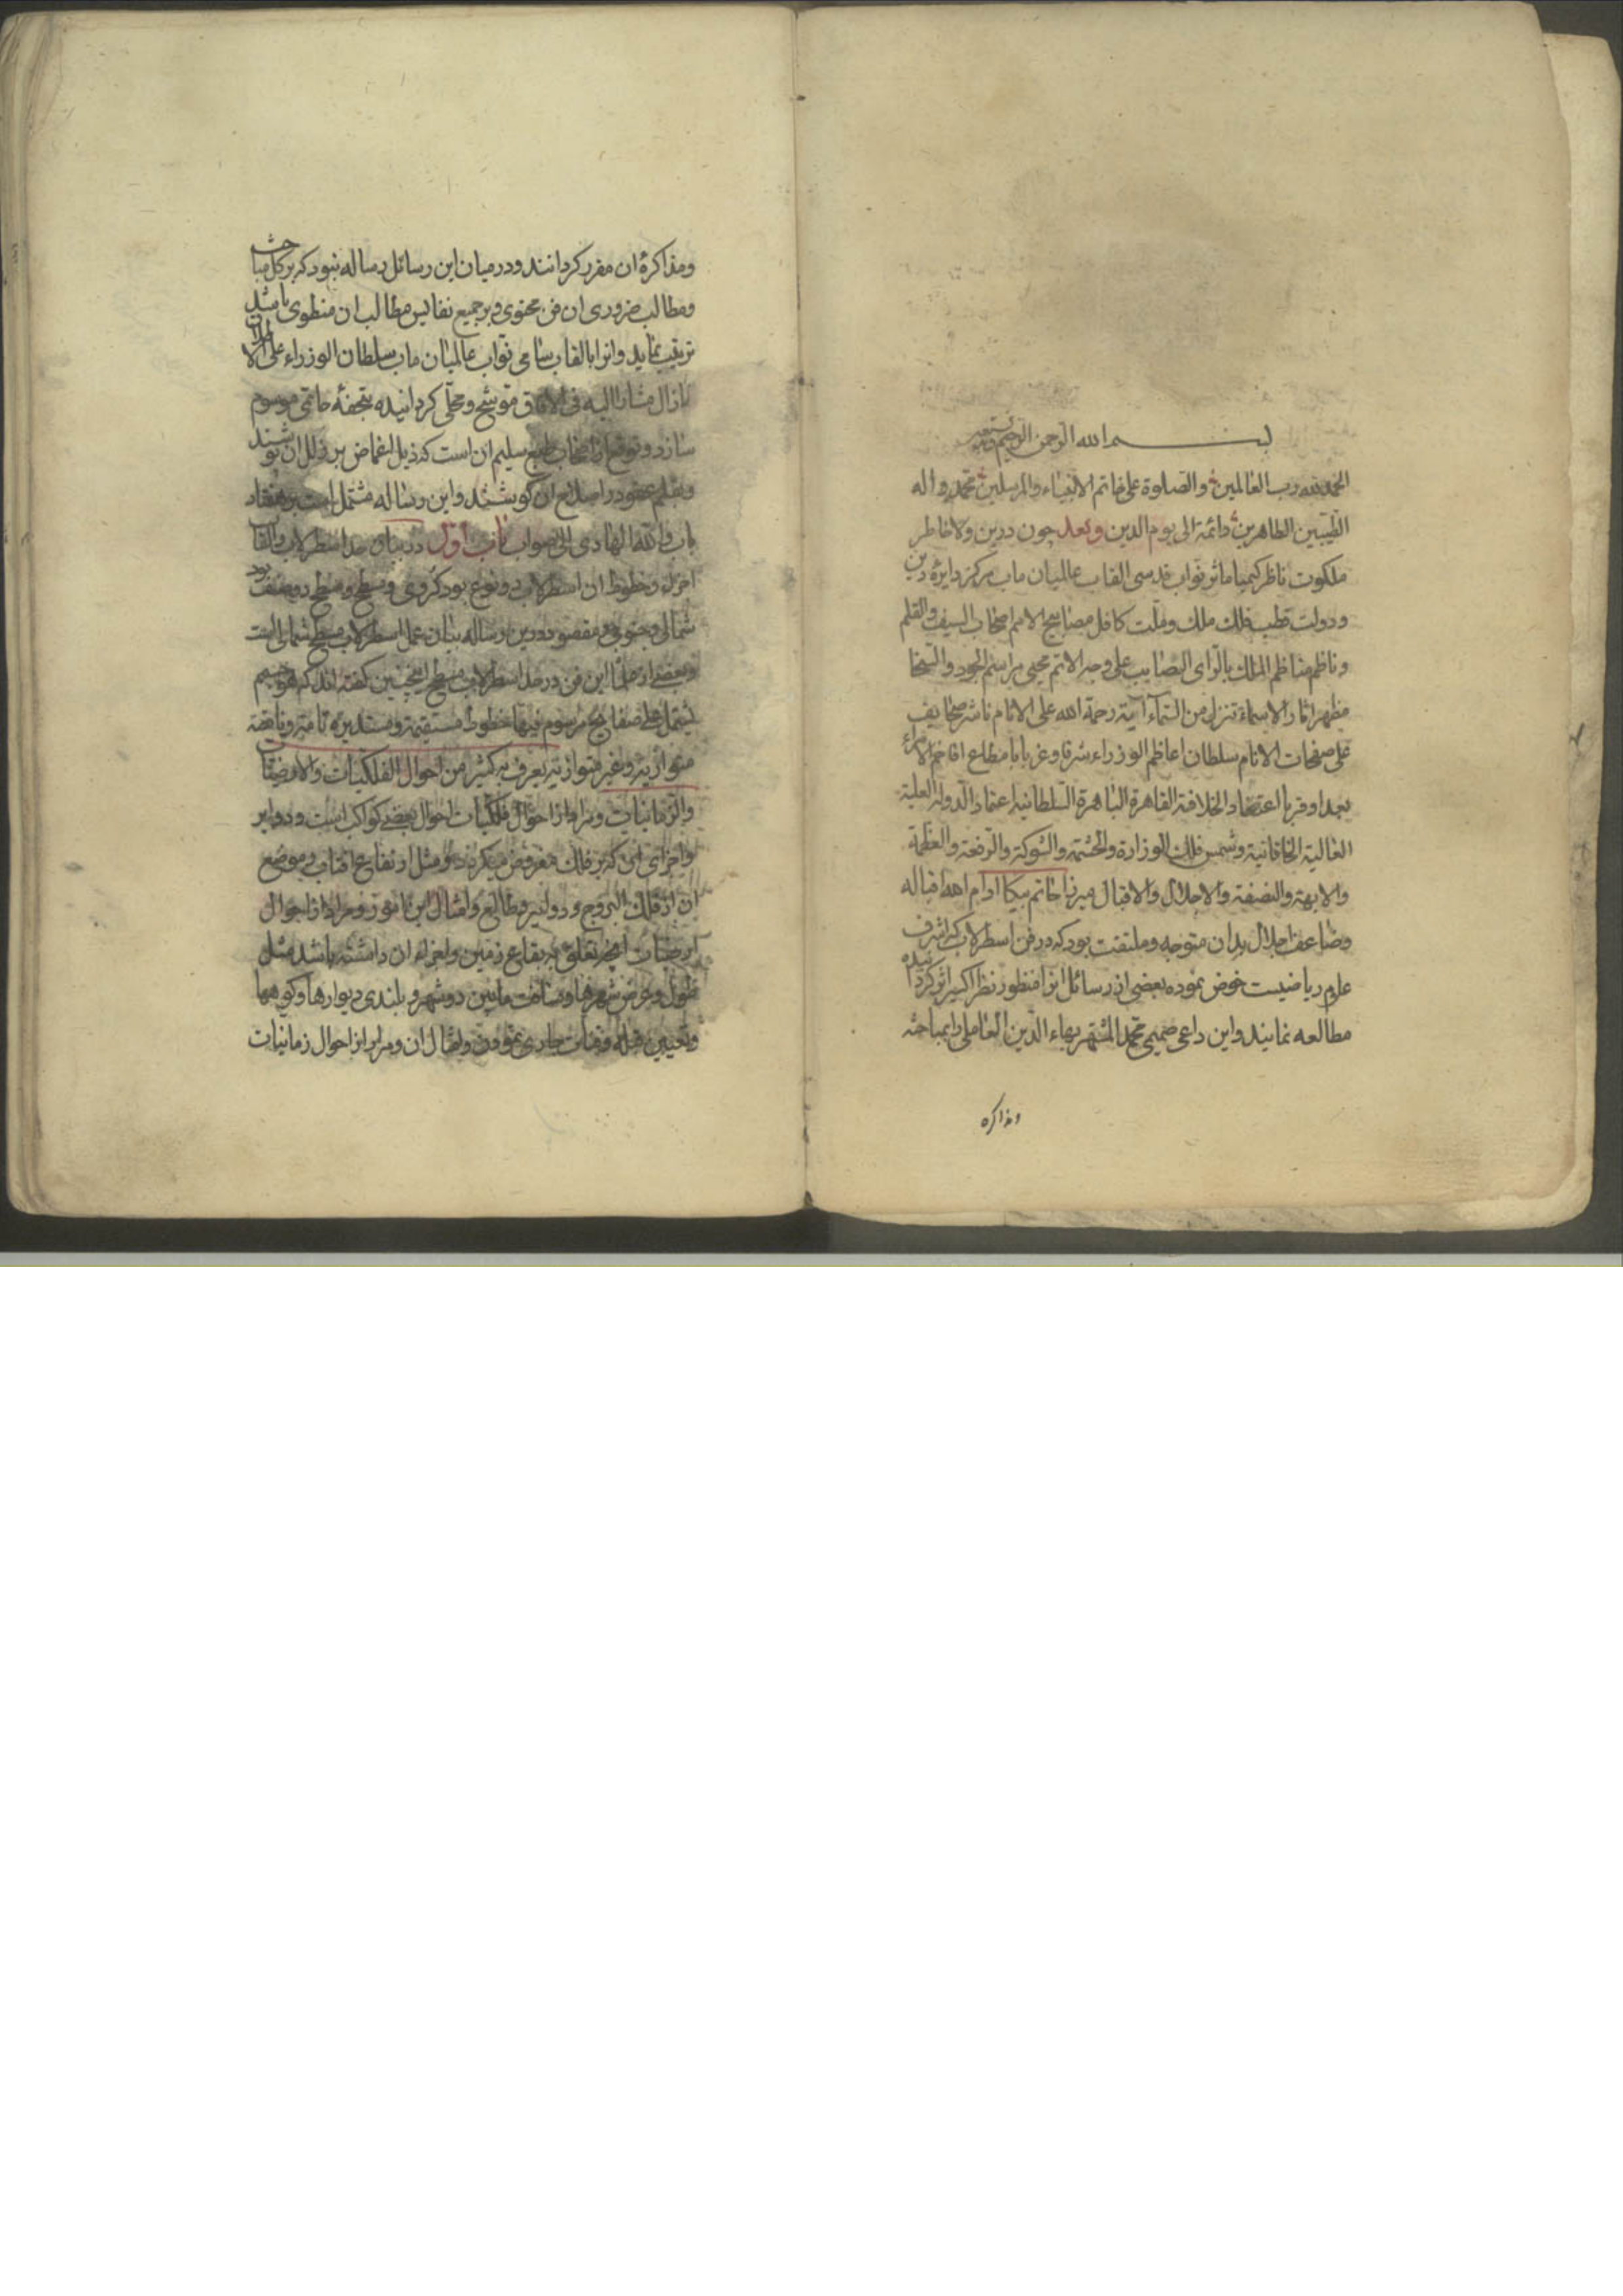 بسم الله الرحمن الرحیم وبه نستعین
الحمد لله رب العالمین والصلوة علی خاتم الانبیاء والمرسلین محمد واله
الطیبین الطاهرین دائمة الی یوم الدین وبعد چون درین ولا خاطر
ملکوت ناظر کیمیا ماثر نواب قدسی القاب عالمیان ماب مرکز دایره دین
ودولت قطب فلک ملک وملت کافل مصابیح الامم صاحب السیف والقلم
وناظم مناظم الملک بالرای الصایب علی وجه الاتم محیی مراسم الجود والسخا
مظهر اثار الاسماء تنزل من السماء آیة رحمة الله علی الانام ناشر صحایف
علی صفحات الایام سلطان اعاظم الوزراء شرقا وغربا مطاع افاخم الامراء
بعدا وقربا اعتضاد الخلافة القاهرة الباهرة السلطانیة اعتماد الدولة العلیة
العالیة الخاقانیة وشمس فلک الوزارة والحشمة والشوکة والرفعة والعظمة
والابهة والنصفة والاجلال والاقبال میرزا خاتم بیکا ادام الله اقباله
وضاعف اجلاله بدان متوجه وملتفت بود که در فن اسطرلاب که اشرف
علوم ریاضیست خوض نموده بعضی از رسائل انرا منظور نظر اکسیر اثر کردانیده
مطالعه نمایند واین داعی صمیمی محمد المشتهر ببهاء الدین العاملی را بمباحثه
ومذاکره
ومذاکرهٔ ان مقرر کردانند ودر میان این رسائل رساله نبود که بر کل مباحث
ومطالب ضروری ان فن محتوی وبر جمیع نفایس مطالب ان منطوی باشد
ترتیب نماید وانرا بالقاب سامی نواب عالمیان ماب سلطان الوزراء علی الاطلاق
لازال مشارا الیه فی الافاق موشح ومحلی کردانیده بتحفهٔ حاتمی موسوم
سازد وتوقع از اصحاب طبع سلیم ان است که ذیل اغماض بر زلل ان پوشند
وبقلم عفو در اصلاح ان کوشند واین رساله مشتمل است بر هفتاد
باب والله الهادی الی الصواب باب اول در بیان حد اسطرلاب والقاب
اجزاء وخطوط ان اسطرلاب دو نوع بود کروی ومسطح ومسطح دو صنف بود
شمالی وجنوبی ومقصود درین رساله بیان عمل اسطرلاب مسطح شمالی است
وبعضی از علماء این فن در حد اسطرلاب مسطح چنین کفته اند که هو جسم
یشتمل علی صفایح مرسوم فیها خطوط مستقیمة ومستدیرة تامة وناقصة
متوازیة وغیر متوازیة یعرف به کثیر من احوال الفلکیات والارضیات
والزمانیات ومراد از احوال فلکیات احوال بعضی کواکب است ودوایر
واجزای ان که بر فلک مفروض میکردد ومثل ارتفاع افتاب وموضع
ان از فلک البروج ودوایر ومطالع وامثال این امور ومراد از احوال
ارضیات انچه تعلق به بقاع زمین واجزاء ان داشته باشد مثل
طول وعرض شهرها ومسافت مابین دو شهر وبلندی دیوارها وکوهها
وتعیین قبله وقنات جاری نمودن وامثال ان ومراد از احوال زمانیات